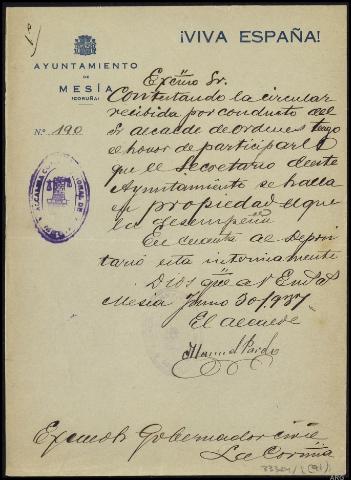 1º
¡VIVA ESPAÑA!
AYUNTAMIENTO
DE
MESÍA
(CORUÑA)
Nº 190
Excmo Sr.
Contestando la circular
recibida por conducto del
Sr alcalde de Ordenes tengo
el honor de participarle
que el Secretario de este
Ayuntamiento se halla
en propiedad el que
la desempeña
En cuanto al Depori
tario está interinamente
Dios gue a V E m. a.
Mesia Junio 30/937
El alcalde
Manuel Pardo
Excmo Sr Gobernador civil
La Coruña